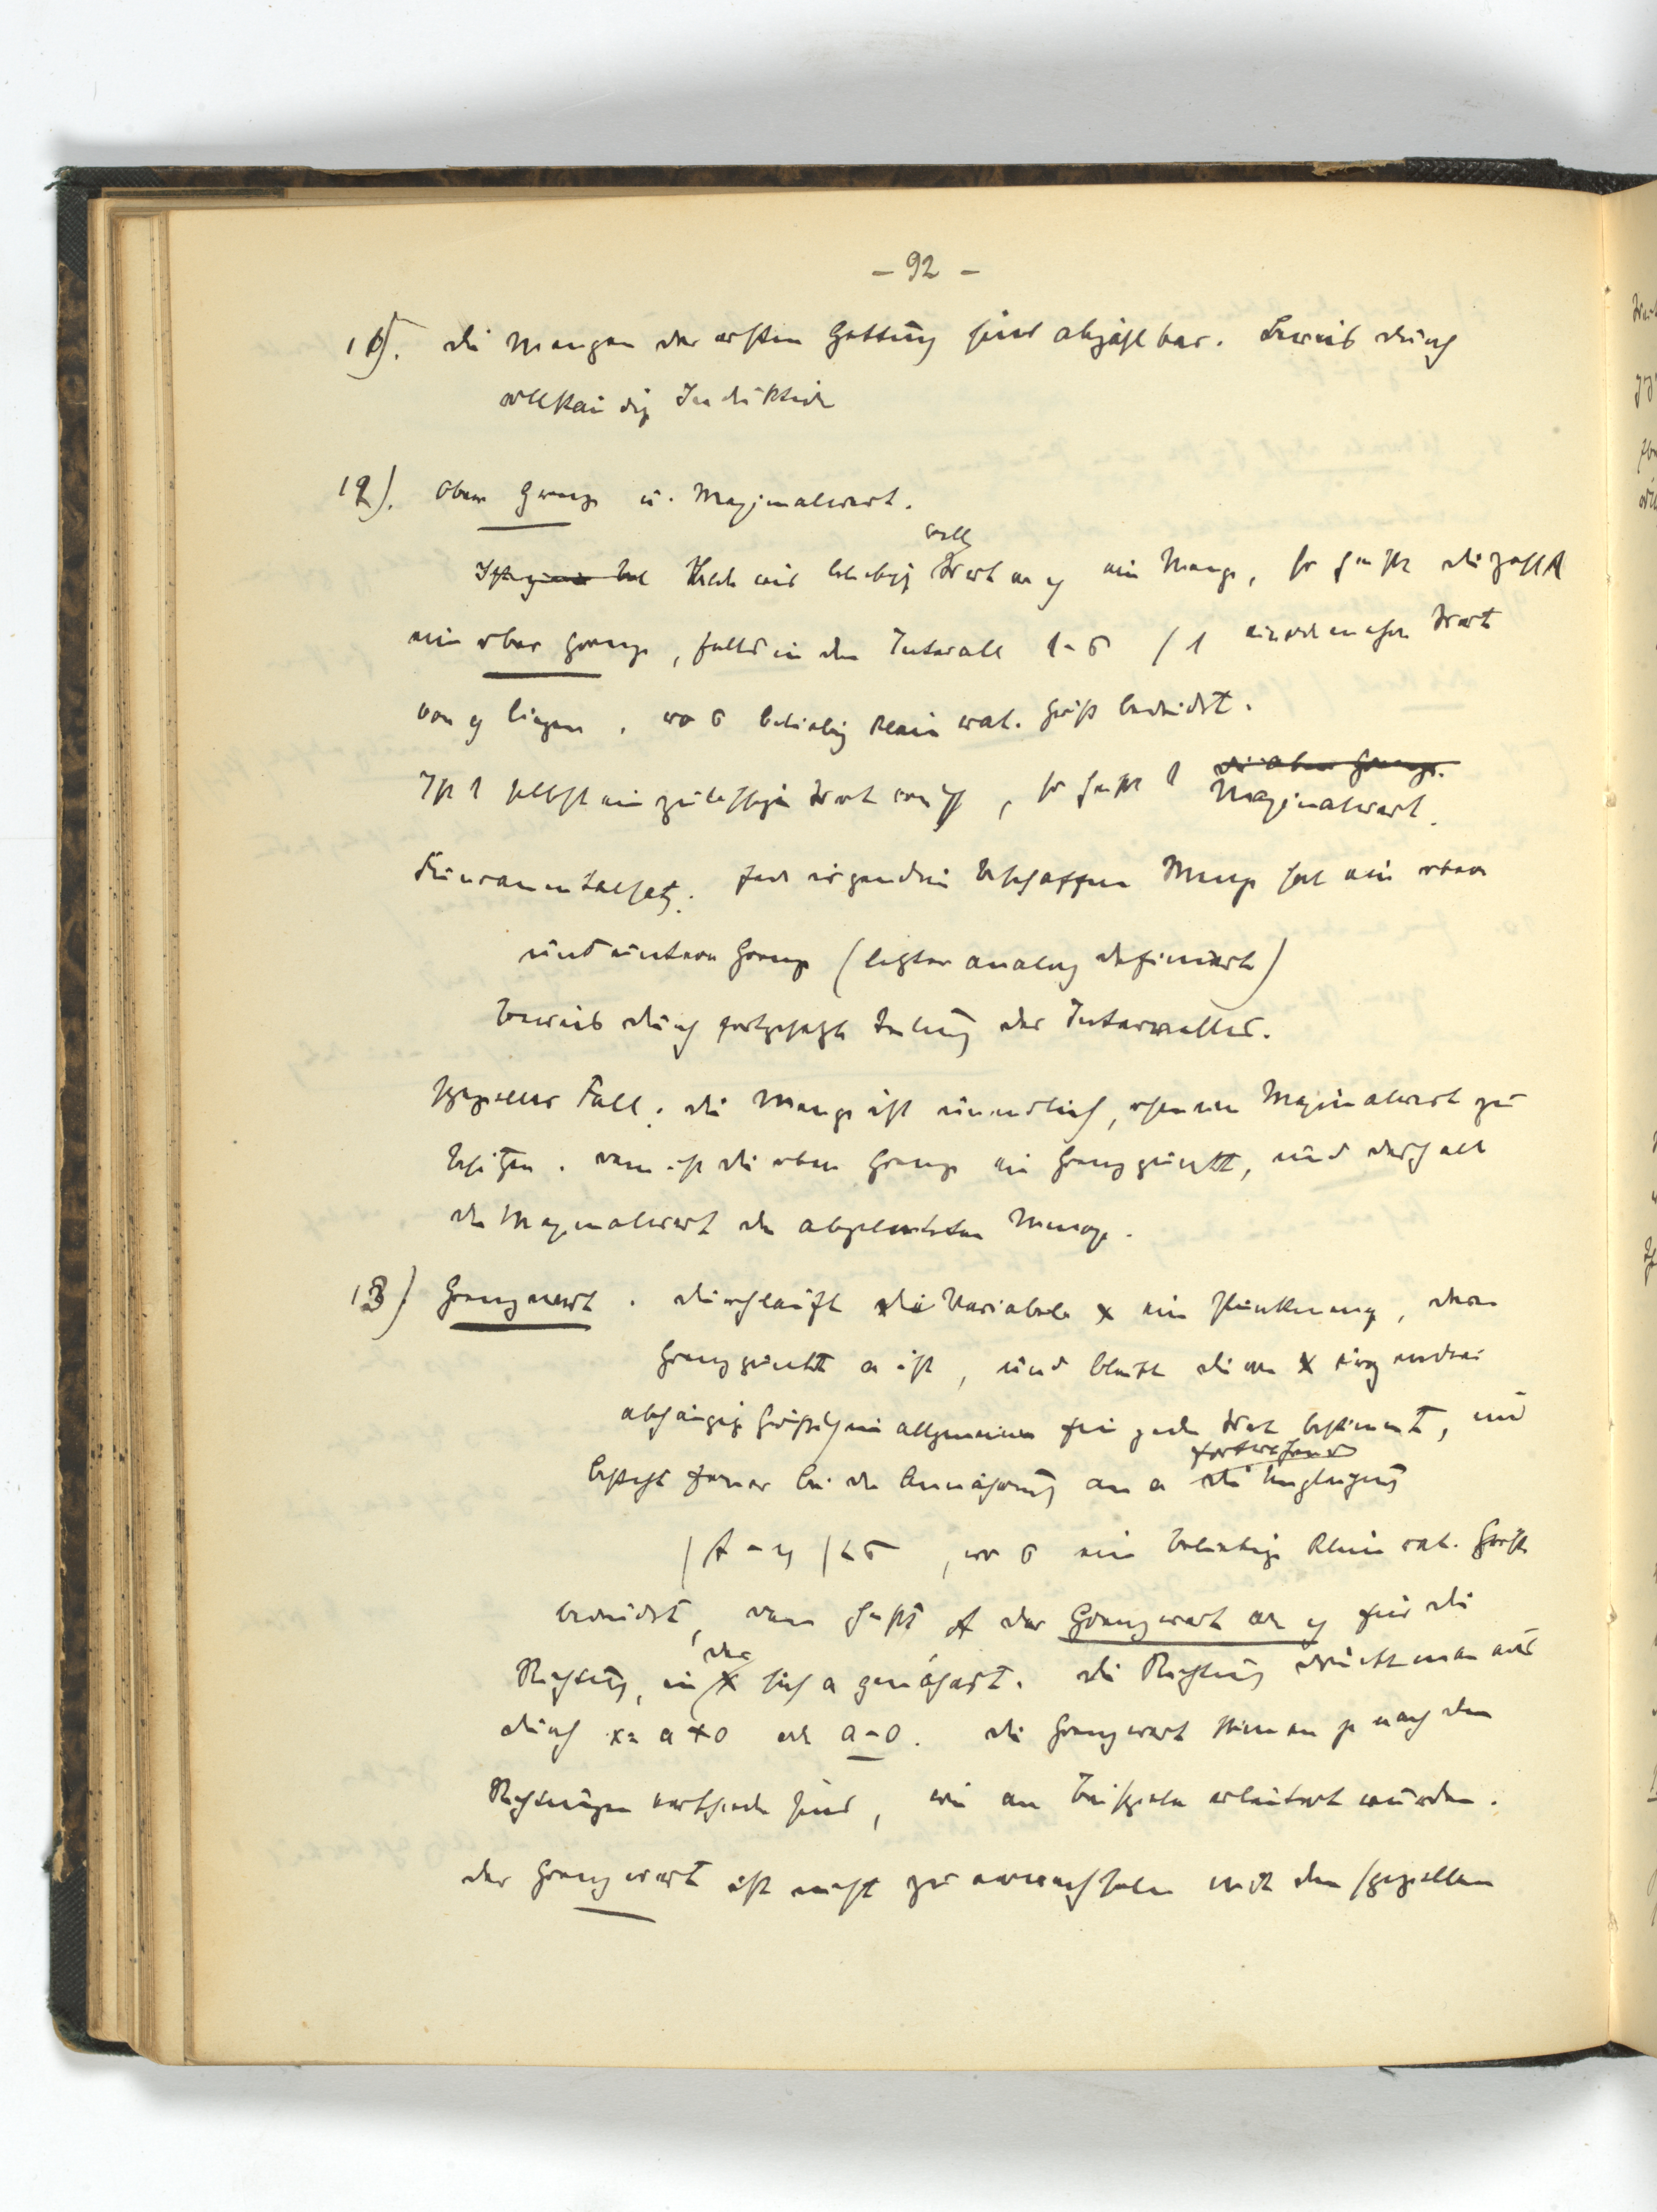 - 92 -
11). die Mengen der ersten Gattung sind abzählbar. Beweis durch
vollständige Induktion
12). Obere Grenze u. Maximalwert.
beliebige Werte y eine Menge, so heißt die Zahl
eine obere Grenze, falls in dem Intervall l-δ / l Werte
von y liegen, wo δ beliebig kleine rat. Größe bedeutet.
Ist l selbst ein zulässiger Wert von y, so heißt l die obere Grenze. Maximalwert.
Fundamentalsatz: Jede irgendwie beschaffene Menge hat eine obere
und untere Grenze (letztere analog definiert)
Beweis durch fortgesetzte Teilung des Intervalles.
Spezieller Fall: die Menge ist unendlich, ohne einen Maximalwert zu
besitzen. dann ist die obere Grenze ein Grenzpunkt, und deshalb
der Maximalwert der abgeleiteten Menge.
13) Grenzwert. durchläuft die Variable x eine Punktmenge, deren
Grenzpunkt a ist, und bleibt die von x irgendwie
abhängige Größe y im allgemeinen für jeden Wert bestimmt, und
besteht ferner bei der Annäherung an a fortwährend die Ungleichung
|A - y| < δ, wo δ eine beliebige kleine rat. Größe
bedeutet, dann heißt A der Grenzwert von y für die
Richtung, in der x sich a genähert. die Richtung drückt man aus
durch x = a+0 oder a-0. die Grenzwerte können je nach den
Richtungen verschieden sein, wie an Beispielen erläutert wurden.
der Grenzwert ist nicht zu verwechseln mit dem speziellen